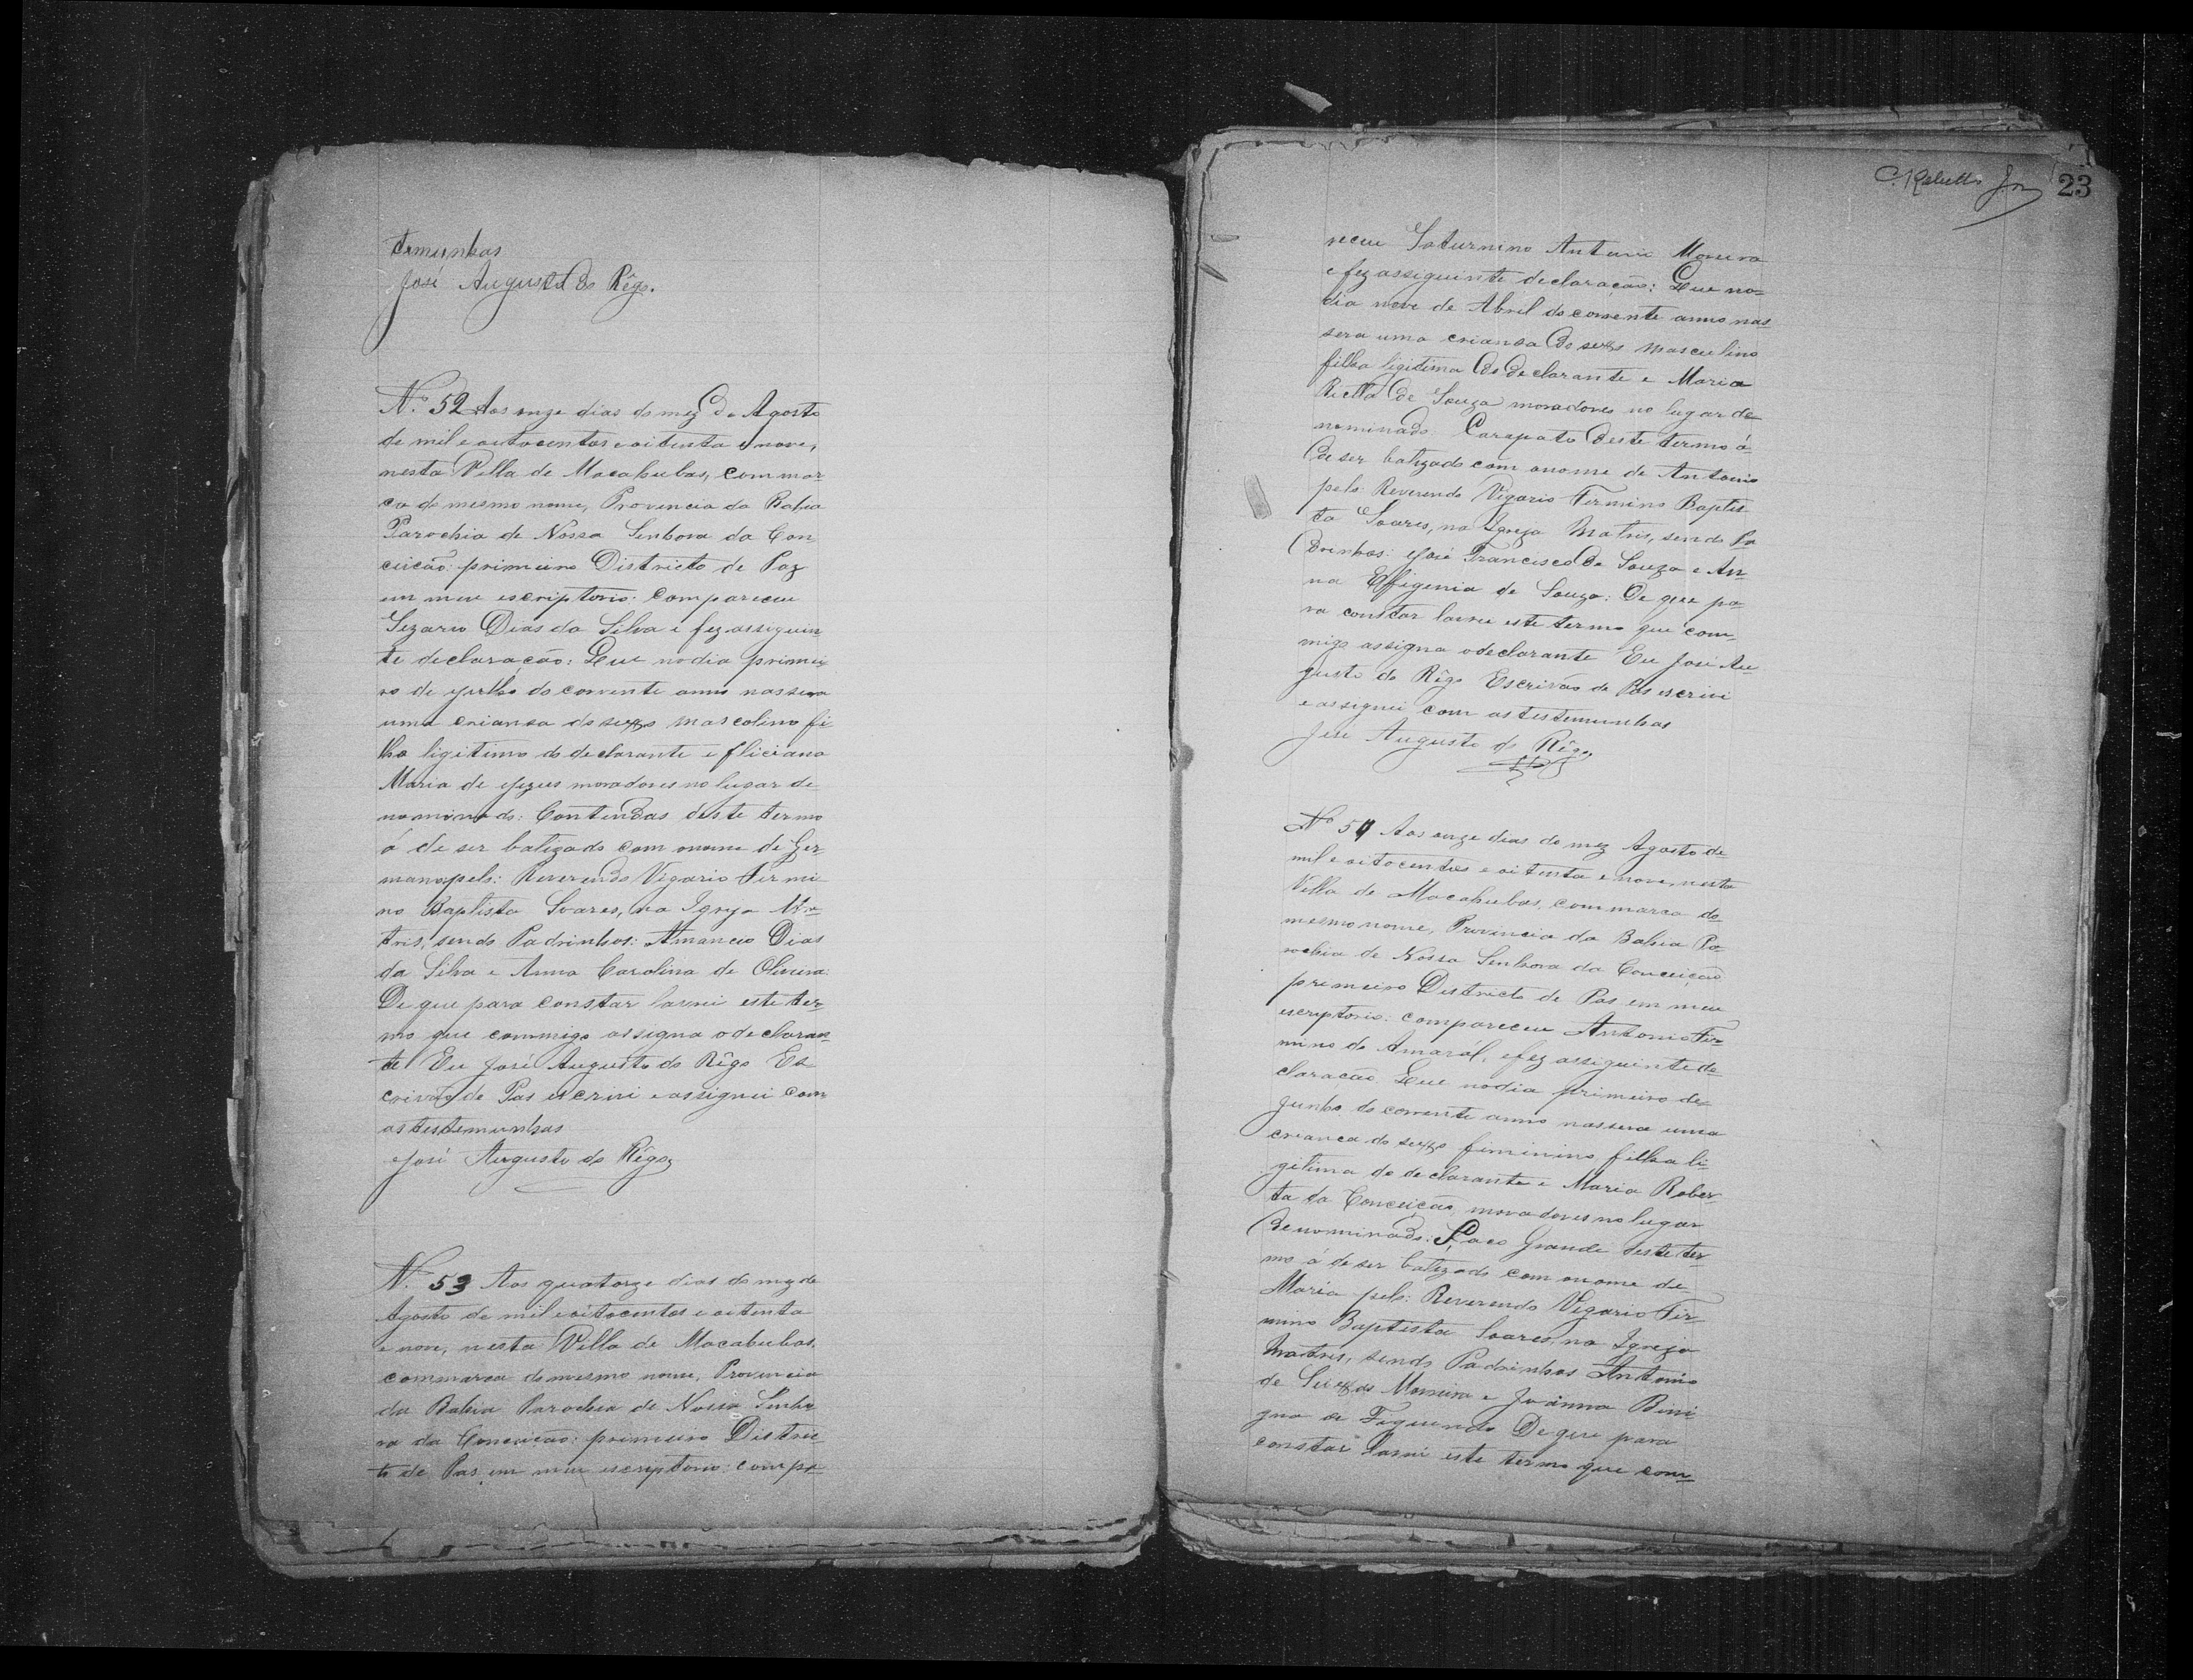 temunhas
José Augusto do Rêgo.
Nº 52 Aos onze dias do mez de Agosto
de mil e outocentos e oitenta e nove,
nesta Villa de Macahubas, commar-
ca do mesmo nome, Provincia da Bahia
Parochia de Nossa Senhora da Con
ceicão: primeiro Districto de Paz
em meu escriptorio: compareceu
Sezario Dias da Silva e fez asseguin
te declaração: Que no dia primei
ro de Julho do corrente anno nassera
uma criansa do sexso mascolino fi
lho ligitimo do declarante e Fliciana
Maria de Jezus moradores no lugar de
nominado: Contendas deste termo
á de ser batizado com onome de Ger
mano pelo: Reverendo Vigario Firmi
no Baptista Soares, na Igreja Ma
tris, sendo Padrinhos: Amancio Dias
da Silva e Anna Carolina de Oliveira:
De que para constar lavrei este ter
mo que commigo assigna odeclaran
te Eu José Augusto do Rêgo Es
crivão de Pas escrivi e assignei com
as testemunhas
José Augusto do Rêgo
Nº 53 Aos quatorze dias do mez de
Agosto de mil e oitocentos e oitenta
e nove, nesta Villa de Macahubas,
commarca do mesmo nome, Provincia
da Bahia Parochia de Nossa Senho
ra da Conceicão: primeiro Distric
to de Pas em meu escriptorio: compa-
23
receu Saturnino Antonio Moreira
e fez asseguinte declaração: Que no-
dia nove de Abril do corrente anno nas
sera uma criansa do sexso masculino
filho ligitimo do declarante e Maria
de Souza moradores no lugar de
nominado Carapato deste termo á
de ser batizado com onome de Antonio
pelo: Reverendo Vigario Firmino Baptis
ta Soares, na Igreja Matris, sendo Pa
drinhos: José Francisco de Souza e An-
na Effigenia de Souza: De que pa-
ra constar lavrei este termo que com-
migo assigna odeclarante Eu José Au-
gusto do Rêgo Escrivão de Pas escrivi
e assignei com as testemunhas
José Augusto do Rêgo
Nº 54 Aos onze dias do mez Agosto de
mil e oitocentos e oitenta e nove, nesta
Villa de Macahubas, commarca do
mesmo nome, Provincia da Bahia Pa
rochia de Nossa Senhora da Conceição
primeiro Districto de Pas em meu
escriptorio: compareceu Antonio Fir
mino do Amarál, efez asseguinte de
claracão Que nodia primeiro de
Junho do corrente anno nassera uma
crianca do sexso fiminino filha li
gitima do declarante e Maria Rober
ta da Conceição moradores no lugar
denominado: Saco Grande deste ter
mo á de ser batizado com onome de
Maria pelo: Reverendo Vigario Fir
mino Baptista Soares, na Igreja
Matris, sendo Padrinhos Antonio
de Moreira e Joanna Bini
gna de De que para
constar lavrei este termo que com